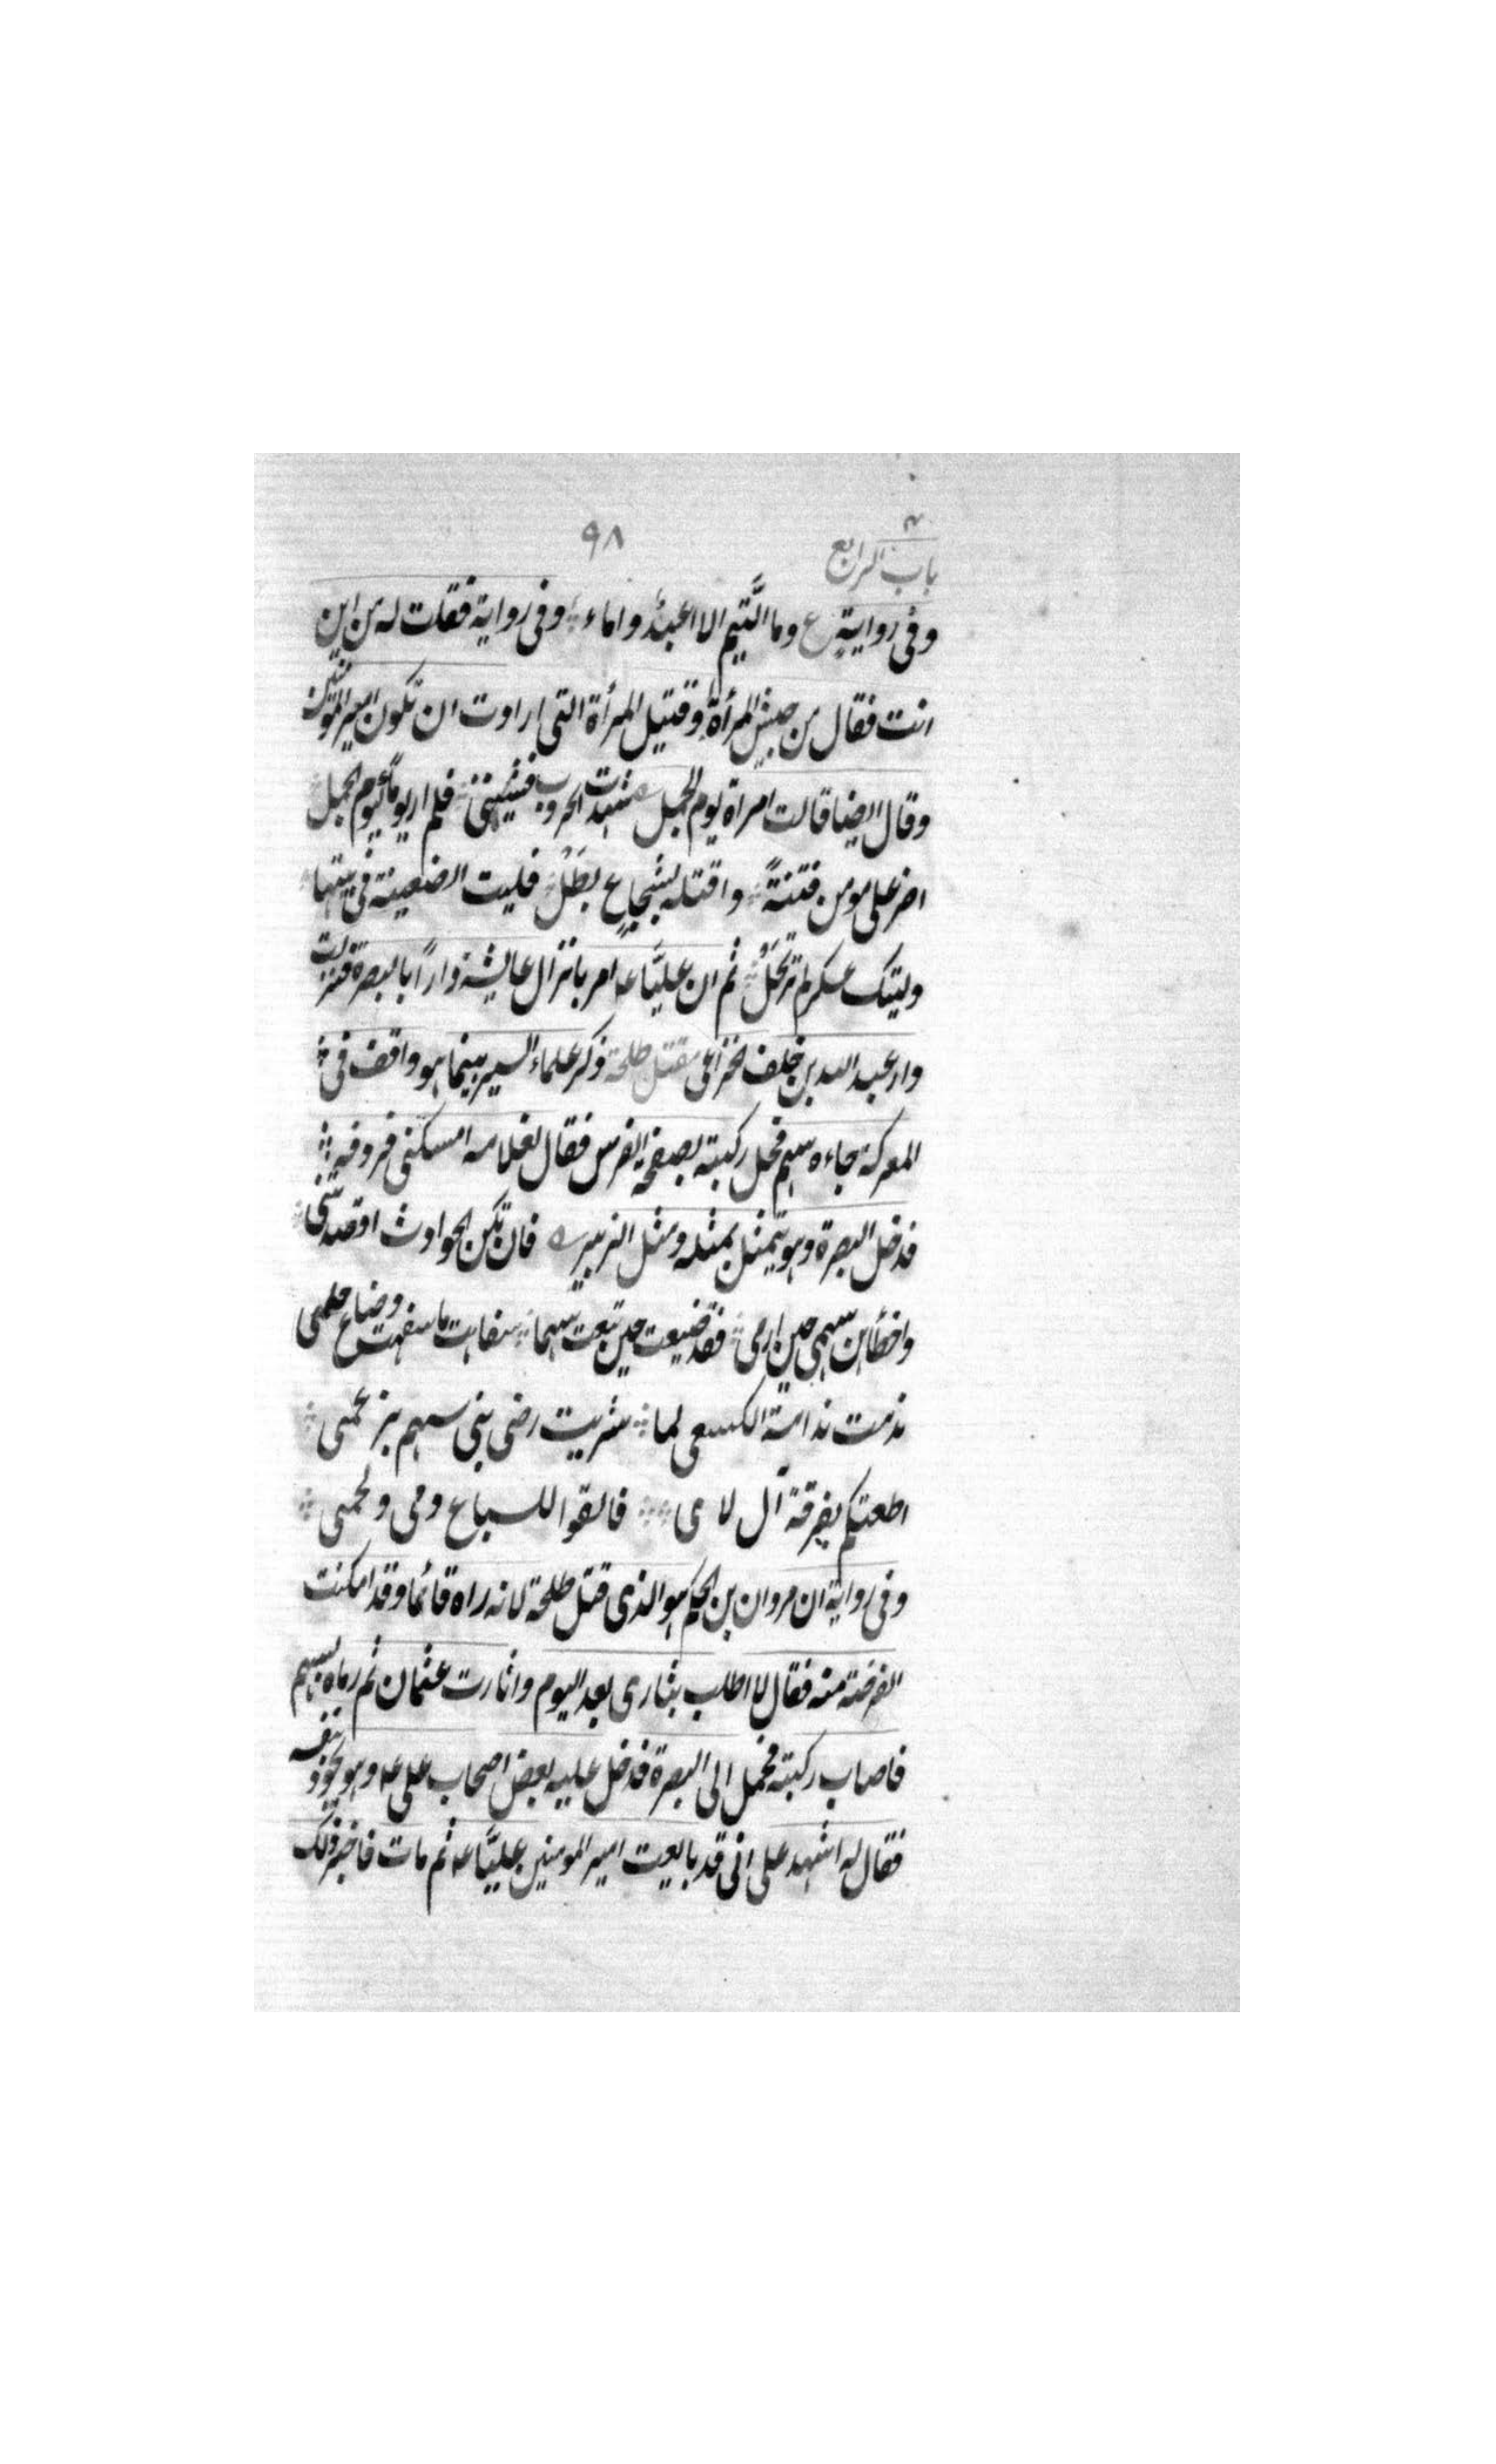 باب الرابع ٩٨
وفی روایةٍ ع وما التَّیم الا اعبدٌ واماء وفی روایة فقلت له من این
انت فقال من جیش المرأة وقتیل المرأة التی ارادت ان تکون امیر المؤمنین
وقال ایضا قالت امراة یوم الجمل شهدت الحروب فشیبتنی فلم ار یوماً کیوم الجمل
اضر علی مومن فتنةً واقتله لشجاعٍ بطل فلیت الضعینة فی بیتها
ولیتک عسکر لم ترتحل ثم ان علیّاً ع امر بانزال عایشة داراً بالبصرة فنزلت
دار عبد الله بن خلف الخزاعی مقتل طلحة ذکر علماء السیر بینما هو واقف فی
المعرکة جاءه سهم فخل رکبته بصفحة الفرس فقال لغلامه امسکنی
فدخل البصرة وهو یتمثل بمثله ومثل الزبیر فان تکن الحوادث اقصدتنی
واخطأهن سهمی حین ارمی فقد ضیعت حین تبعت سهما سفاهت ما سفهت وضاع حلمی
ندمت ندامة الکسعی لما شریت رضی بنی سهم بزعمی
اطعتکم بفرقة آل لا ی فالقوا للسباع دمی ولحمی
وفی روایة ان مروان بن الحکم هو الذی قتل طلحة لانه راه قائما وقد امکنت
الفرصة منه فقال لا اطلب بثاری بعد الیوم واثارت عثمان ثم رماه بسهم
فاصاب رکبته فحمل الی البصرة فدخل علیه بعض اصحاب علی ع وهو یجود بنفسه
فقال له اشهد علی انی قد بایعت امیر المومنین علیّاً ع ثم مات فاخبر ذلک